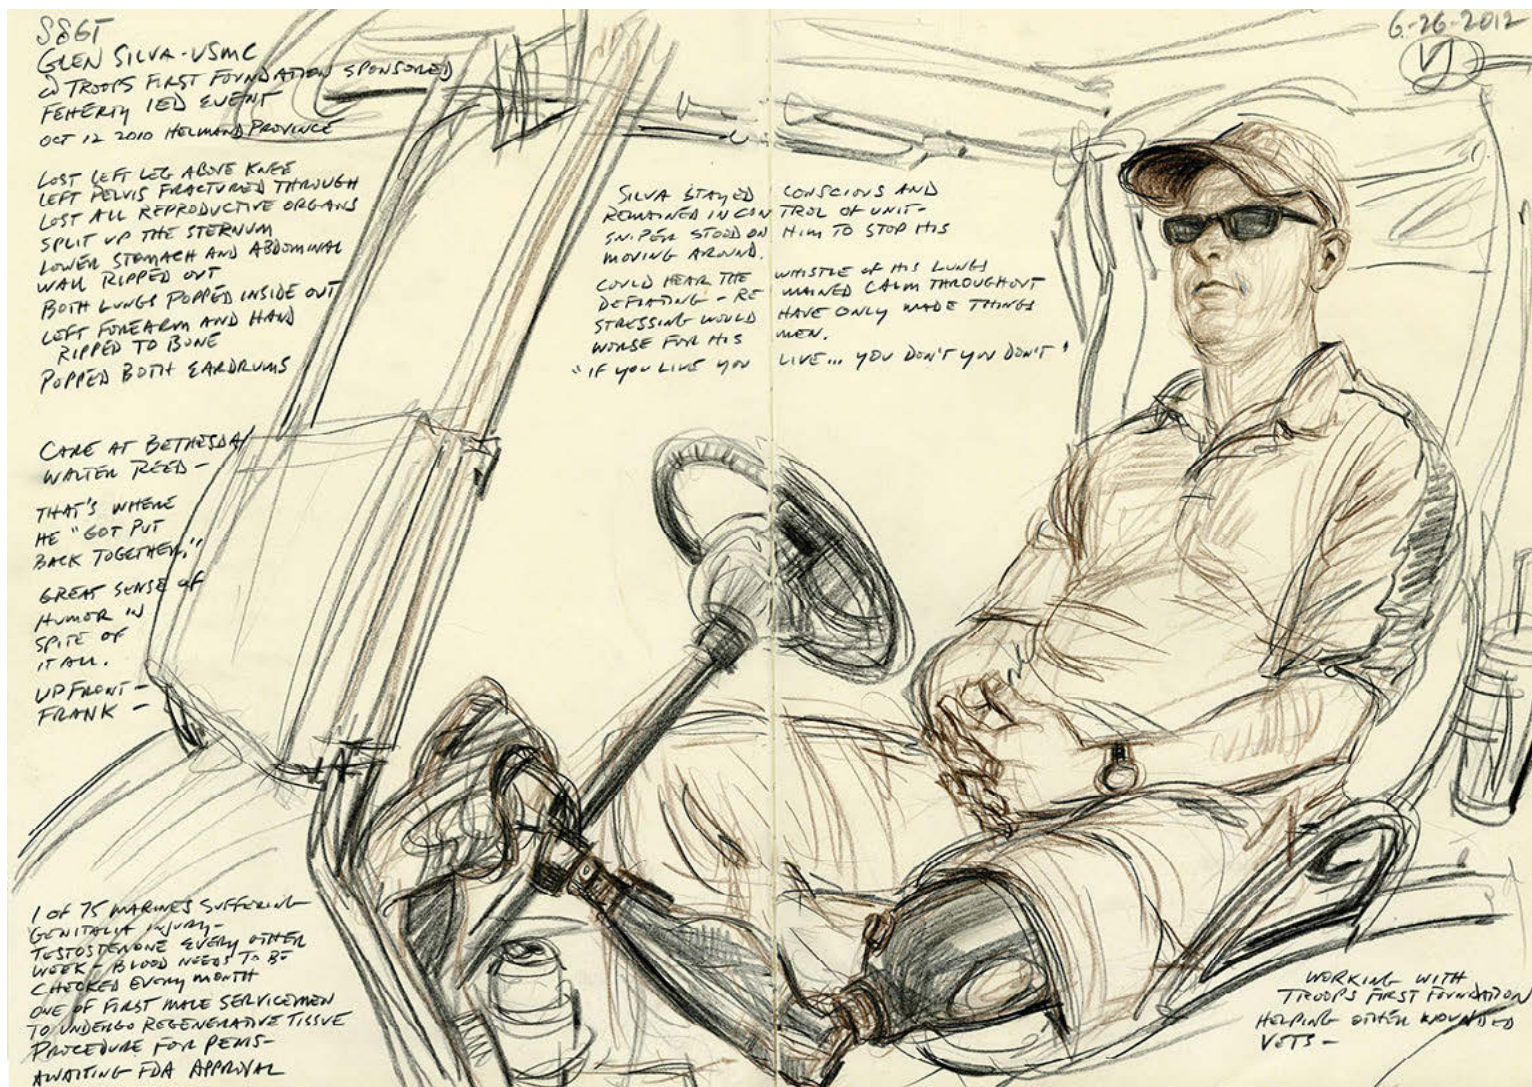 SSGT
GLEN SILVA - USMC
@ TROOPS FIRST FOUNDATION SPONSORED
FEHERTY IED EVENT
OCT 12 2010 HELMAND PROVINCE
LOST LEFT LEG ABOVE KNEE
LEFT PELVIS FRACTURED THROUGH
LOST ALL REPRODUCTIVE ORGANS
SPLIT UP THE STERNUM
LOWER STOMACH AND ABDOMINAL
WALL RIPPED OUT
BOTH LUNGS POPPED INSIDE OUT
LEFT FOREARM AND HAND
RIPPED TO BONE
POPPED BOTH EARDRUMS
CARE AT BETHESDA/
WALTER REED -
THAT'S WHERE
HE "GOT PUT
BACK TOGETHER."
GREAT SENSE OF
HUMOR IN
SPITE OF
IT ALL.
UP FRONT -
FRANK -
1 OF 75 MARINES SUFFERING
GENITALIA INJURY -
TESTOSTERONE EVERY OTHER
WEEK - BLOOD NEEDS TO BE
CHECKED EVERY MONTH
ONE OF FIRST MALE SERVICEMEN
TO UNDERGO REGENERATIVE TISSUE
PROCEDURE FOR PENIS -
AWAITING FDA APPROVAL
SILVA STAYED CONSCIOUS AND
REMAINED IN CONTROL OF UNIT -
SNIPER STOOD ON HIM TO STOP HIS
MOVING AROUND.
COULD HEAR THE WHISTLE OF HIS LUNGS
DEFLATING - REMAINED CALM THROUGHOUT
STRESSING WOULD HAVE ONLY MADE THINGS
WORSE FOR HIS MEN.
"IF YOU LIVE YOU LIVE... YOU DON'T YOU DON'T"
6-26-2012
WORKING WITH
TROOPS FIRST FOUNDATION
HELPING OTHER WOUNDED
VETS -